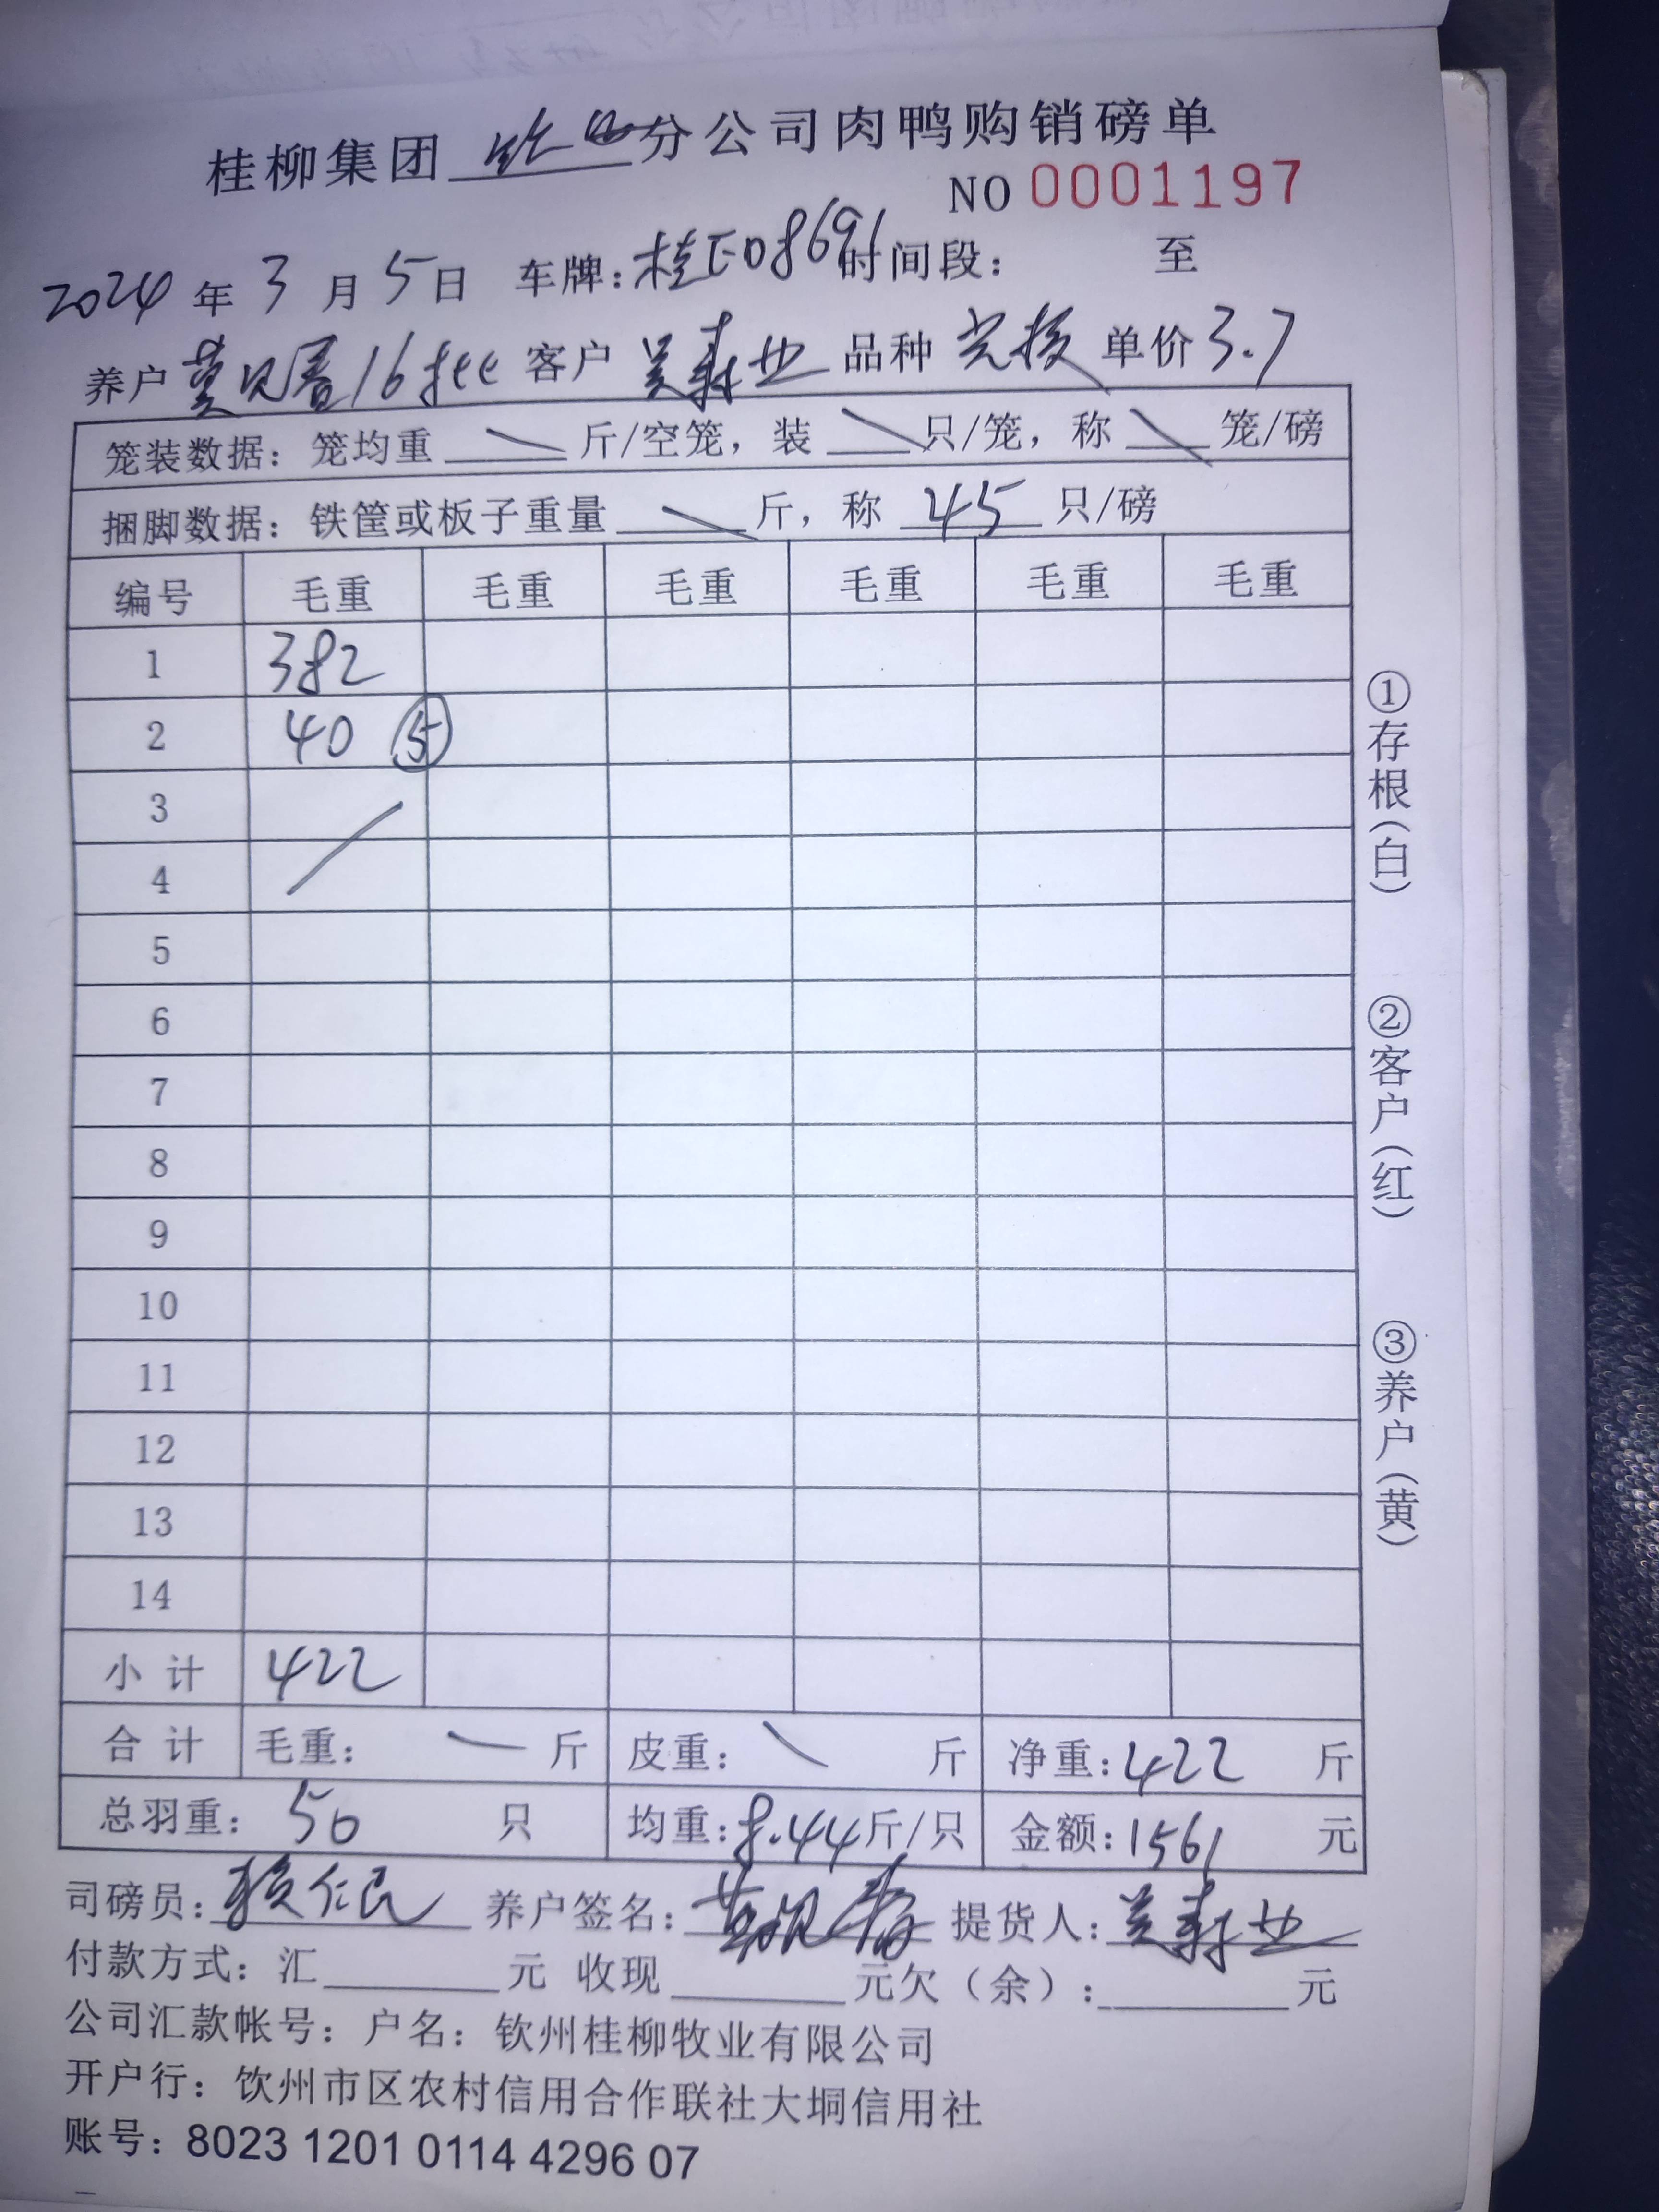 桂柳集团 分公司肉鸭购销磅单
NO 0001197
2024 年 3 月 5 日 车牌: 桂E08691 时间段: 至
养户 16批 客户 吴寿业 品种 单价 3.7
笼装数据: 笼均重 斤/空笼, 装 只/笼, 称 笼/磅
捆脚数据: 铁筐或板子重量 斤, 称 45 只/磅
编号 毛重 毛重 毛重 毛重 毛重 毛重
1 382
2 40 ⑤
3
4
5
6
7
8
9
10
11
12
13
14
小 计 422
合 计 毛重: 斤 皮重: 斤 净重: 422 斤
总羽重: 50 只 均重: 8.44 斤/只 金额: 1561 元
司磅员: 养户签名: 提货人: 吴寿业
付款方式: 汇 元 收现 元欠(余): 元
公司汇款帐号: 户名: 钦州桂柳牧业有限公司
开户行: 钦州市区农村信用合作联社大垌信用社
账号: 8023 1201 0114 4296 07
①存根(白)
②客户(红)
③养户(黄)